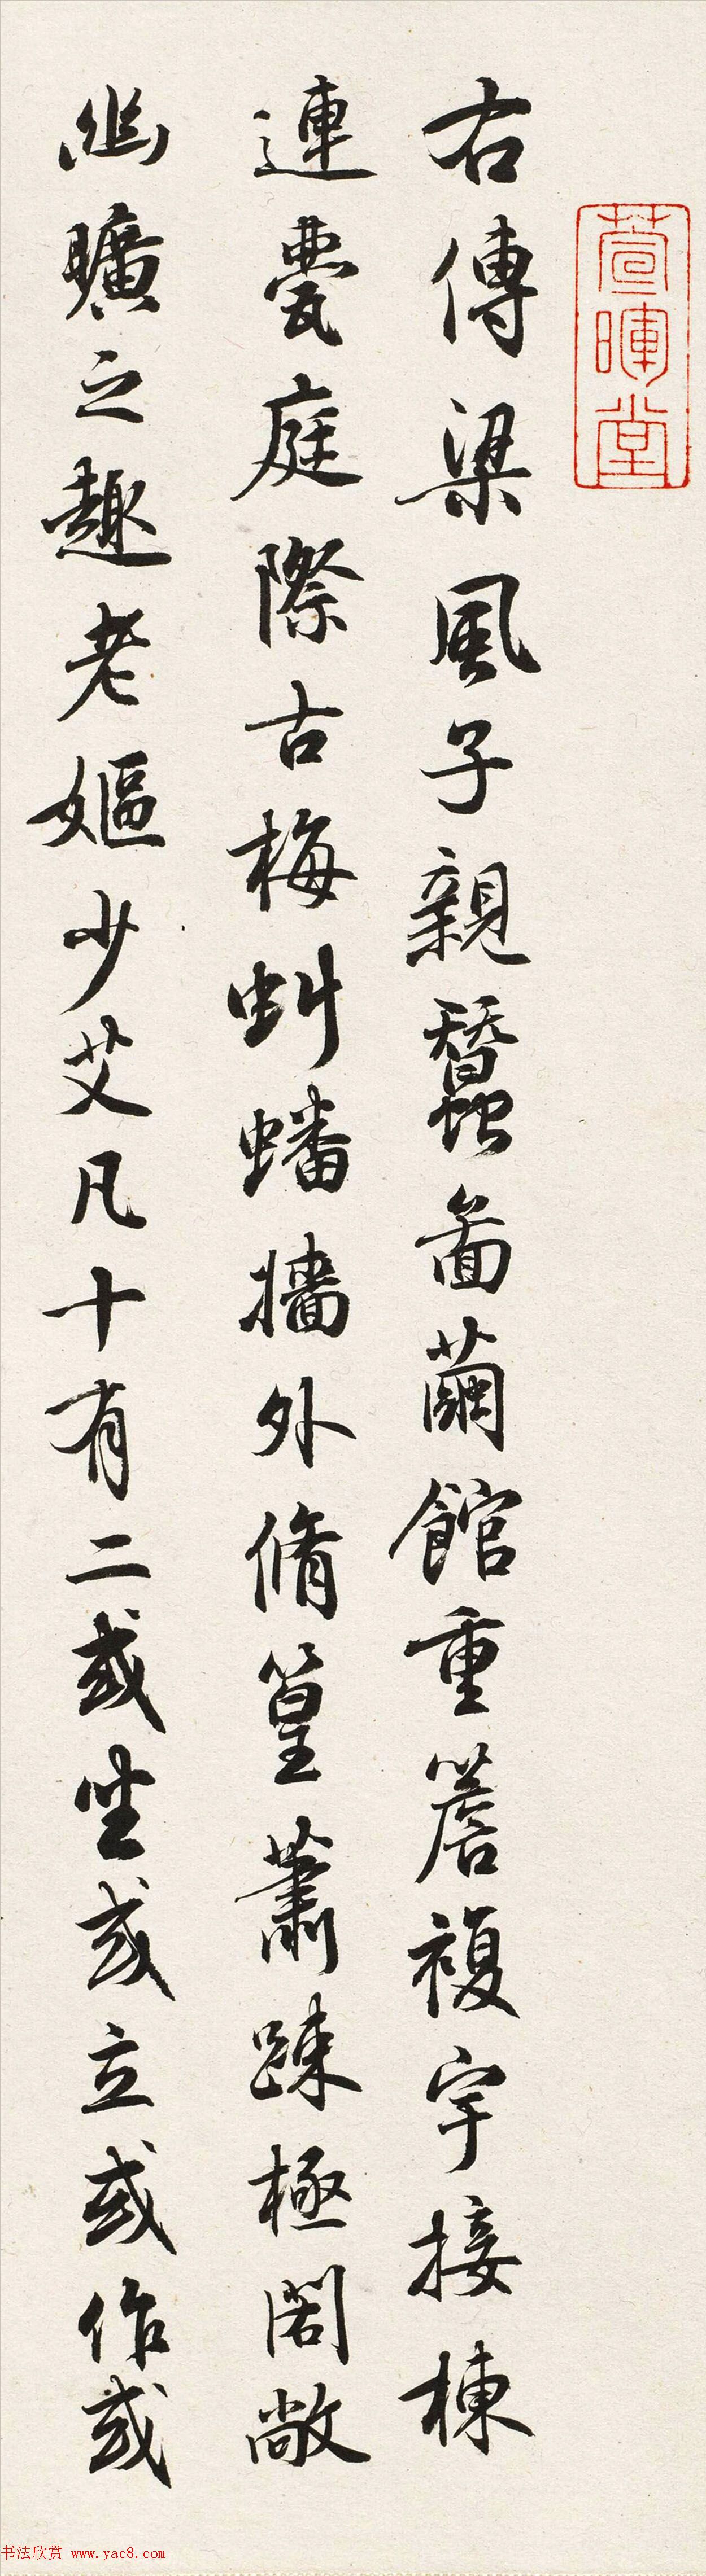 萱暉堂
右傳梁風子親蠶圖繭館重簷複宇接棟
連甍庭際古梅虬蟠墻外脩篁蕭踈極閎敞
幽曠之趣老嫗少艾凡十有二或坐或立或作或
书法欣赏 www.yac8.com